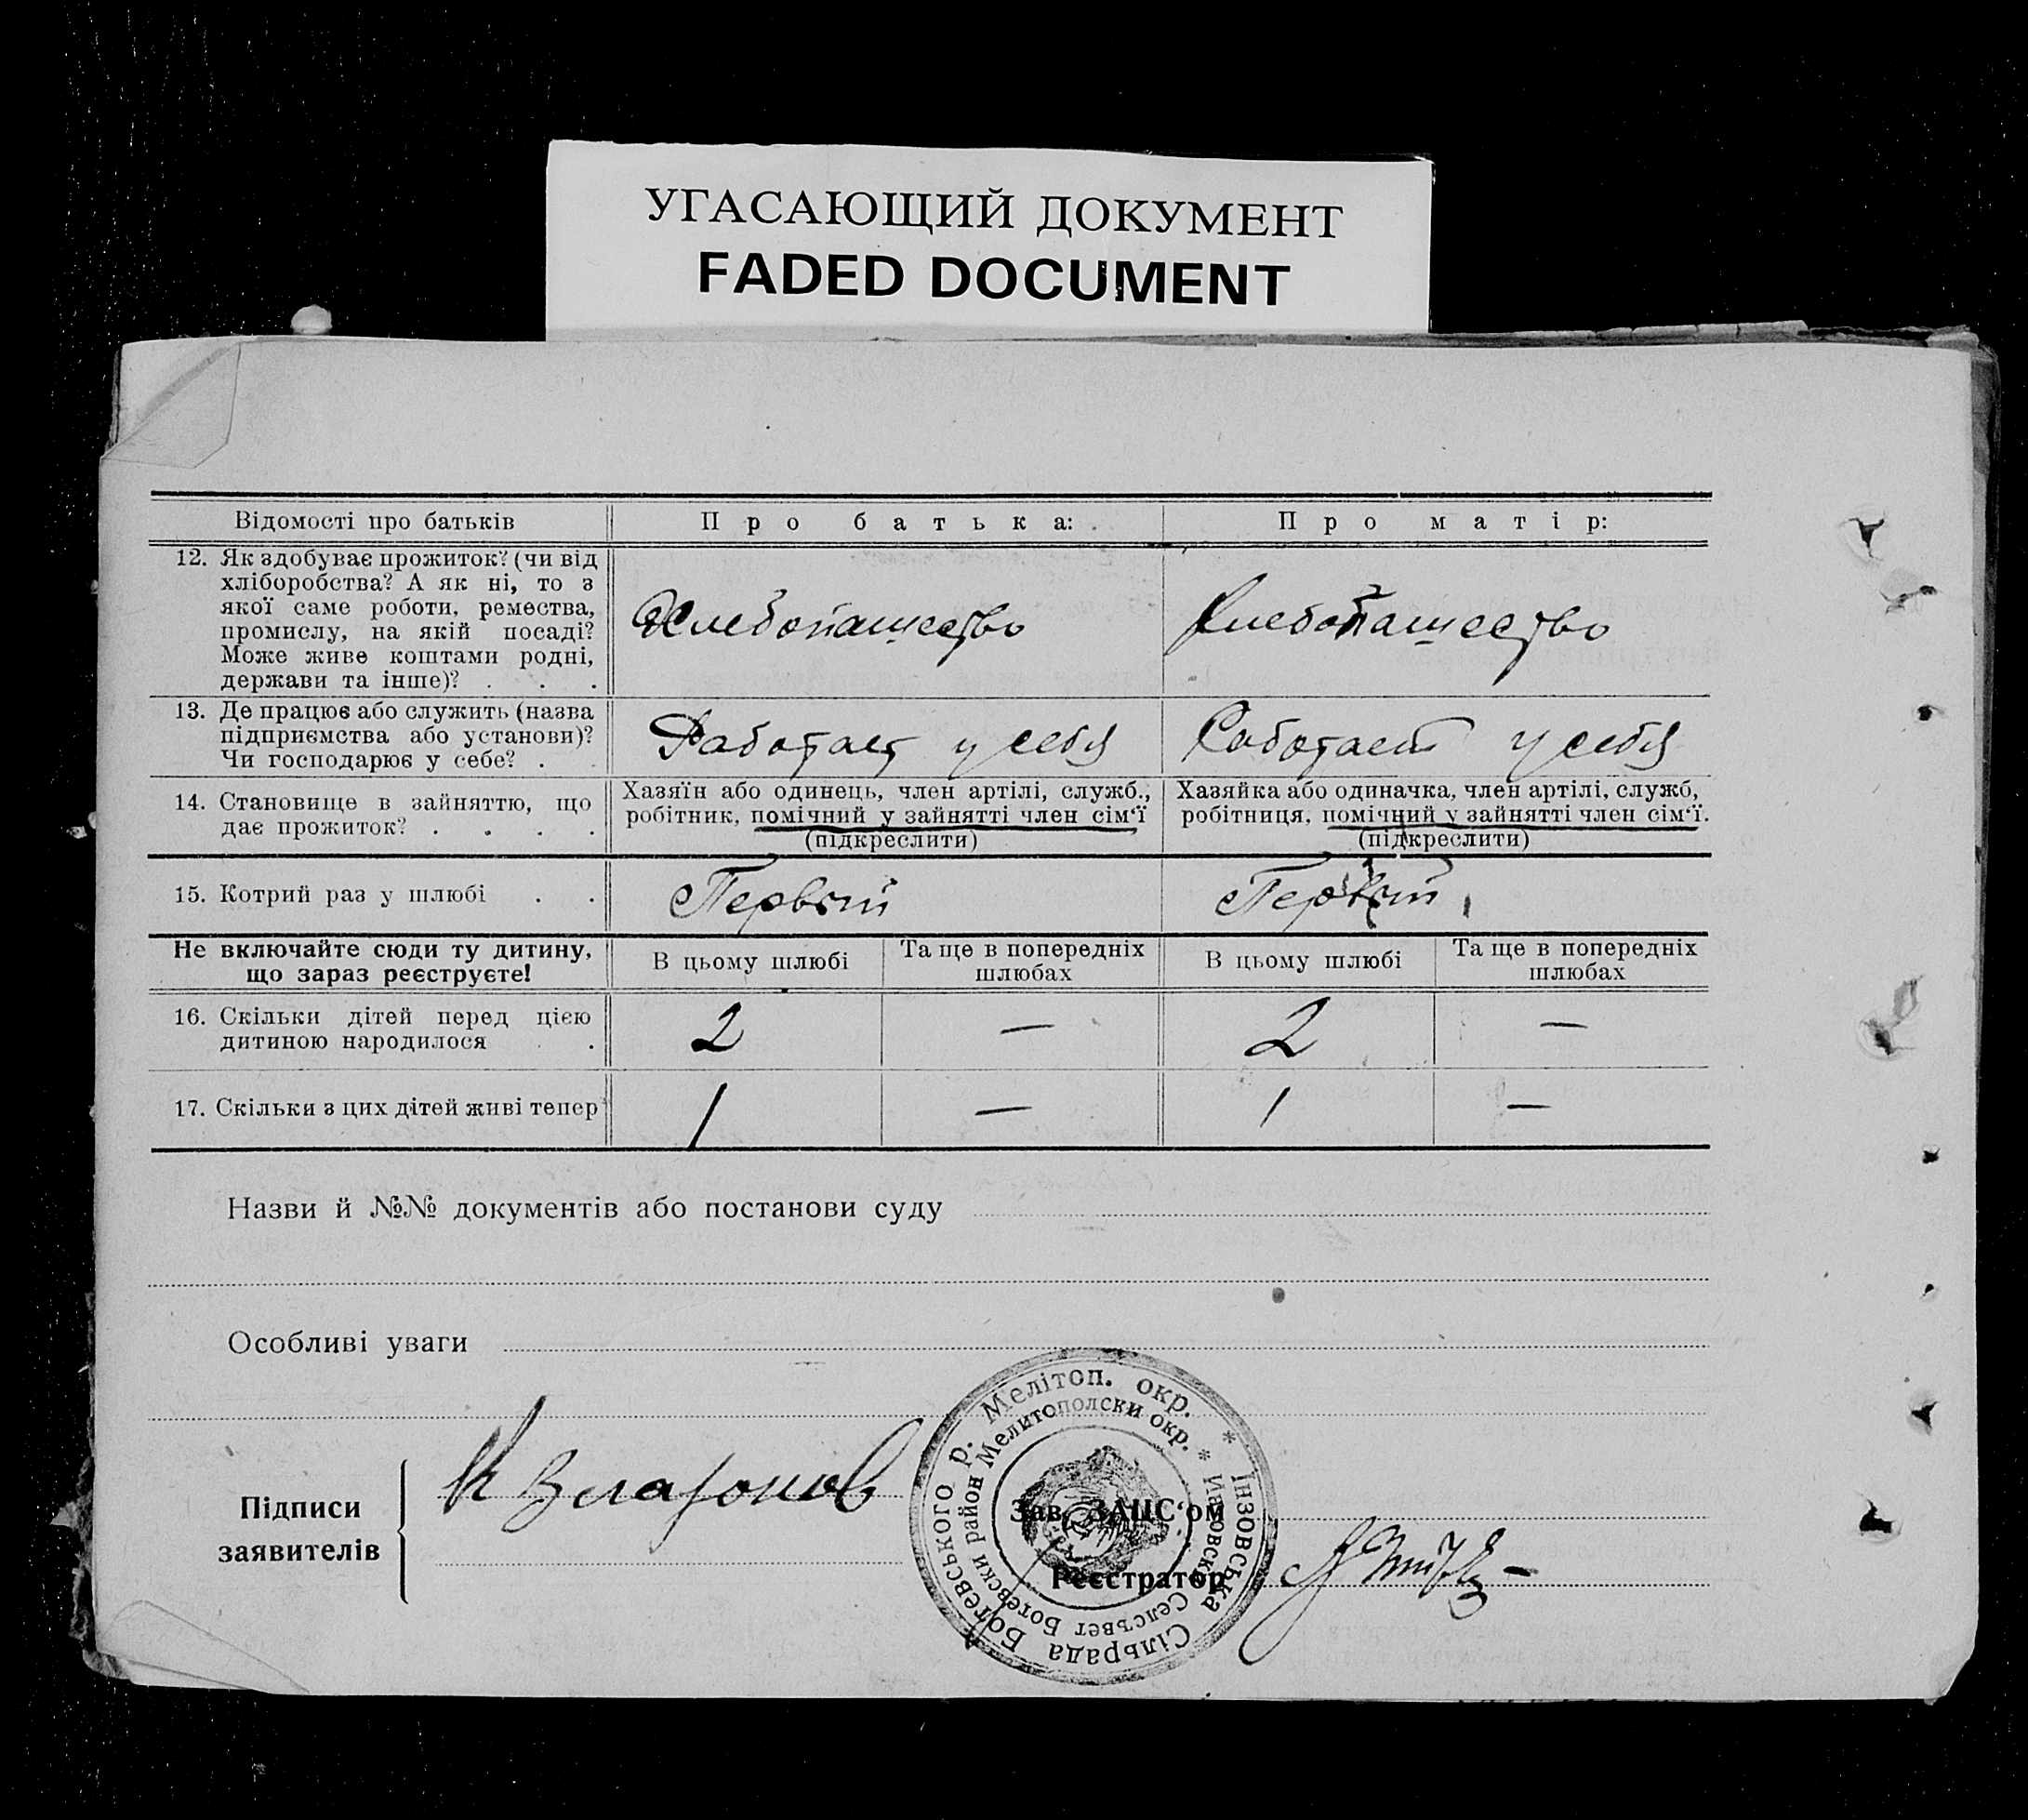 УГАСАЮЩИЙ ДОКУМЕНТ
FADED DOCUMENT
Відомості про батьків
Про батька:
Про матір:
12. Як здобуває прожиток? (чи від
хліборобства? А як ні, то з
якої саме роботи, ремества,
промислу, на якій посаді?
Може живе коштами родні,
держави та інше)? . . .
Хлебопашество
Хлебопашество
13. Де працює або служить (назва
підприємства або установи)?
Чи господарює у себе? .
Работает у себя
Работает у себя
14. Становище в зайняттю, що
дає прожиток? . . . .
Хазяїн або одинець, член артілі, служб.,
робітник, помічний у зайнятті член сім‘ї
(підкреслити)
Хазяйка або одиначка, член артілі, служб,
робітниця, помічний у зайнятті член сім‘ї.
(підкреслити)
15. Котрий раз у шлюбі . .
Первый
Первый
Не включайте сюди ту дитину,
що зараз реєструєте!
В цьому шлюбі
Та ще в попередніх
шлюбах
В цьому шлюбі
Та ще в попередніх
шлюбах
16. Скільки дітей перед цією
дитиною народилося .
2
—
2
—
17. Скільки з цих дітей живі тепер
1
—
1
—
Назви й №№ документів або постанови суду
Особливі уваги
Підписи
заявителів
Зав. ЗАГС‘ом
Реєстратор
Інзовська Сільрада Ботевського р. Мелітоп. окр. *
Селсъвет Ботевски район Мелитополски окр. *